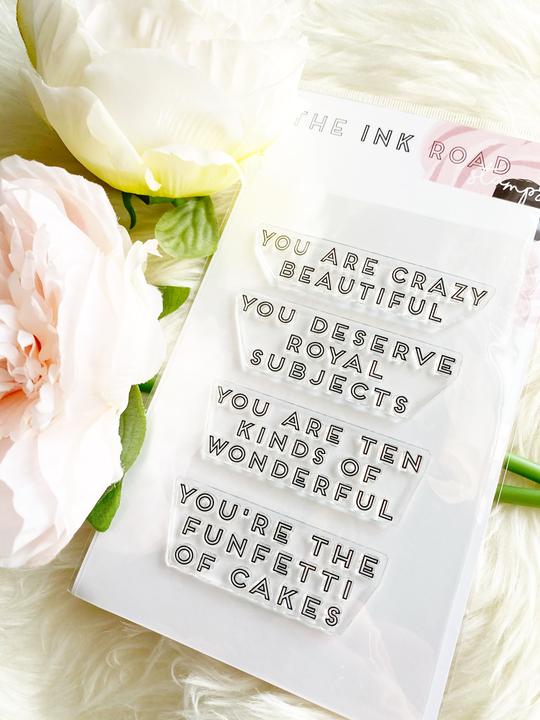 THE INK ROAD
stamps
YOU ARE CRAZY
BEAUTIFUL
YOU DESERVE
ROYAL
SUBJECTS
YOU ARE TEN
KINDS OF
WONDERFUL
YOU'RE THE
FUNFETTI
OF CAKES